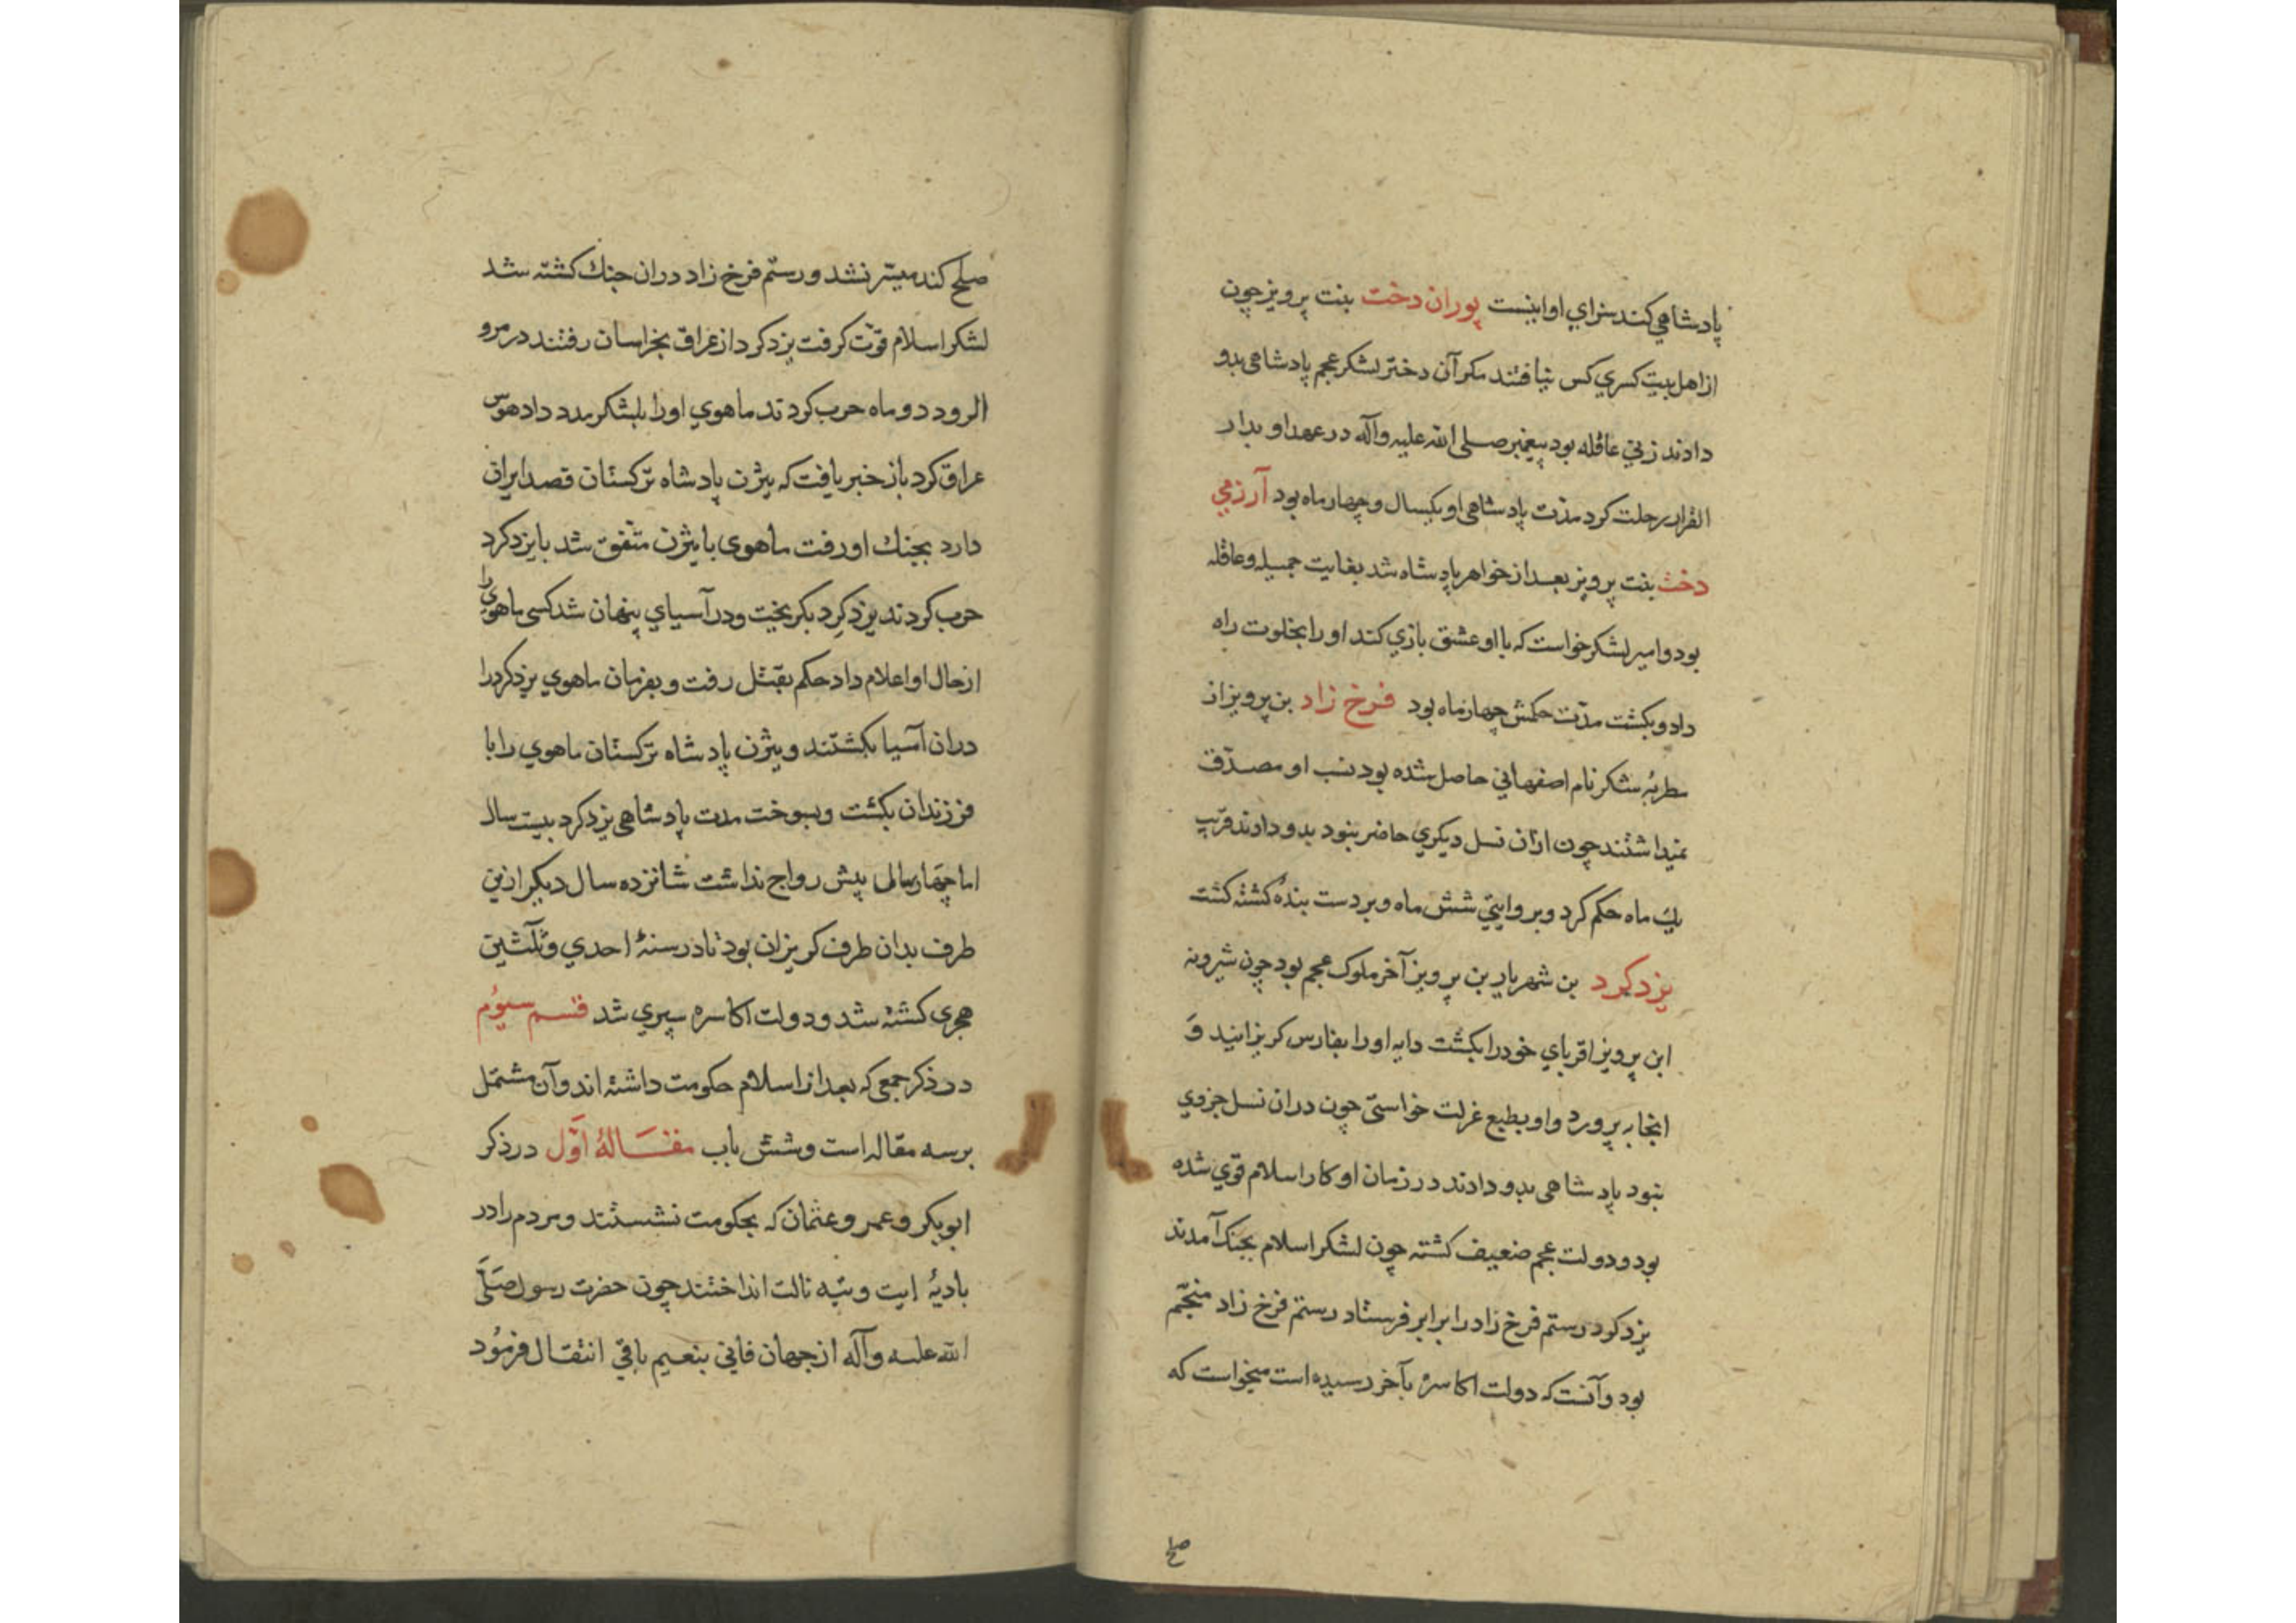 پادشاهي کند سزاي او اینست پوران دخت بنت پرویز چون
از اهل بیت کسري کس نیافتند مکر آن دختر لشکر عجم پادشاهی بدو
دادند زني عاقله بود پیغمبر صلی الله علیه وآله در عهد او بدار
القرار رحلت کرد مدّت پادشاهی او یکسال و چهار ماه بود آرزمي
دخت بنت پرویز بعد از خواهر پادشاه شد بغایت جمیله وعاقله
بود وامیر لشکر خواست که با او عشق بازي کند او را بخلوت راه
داد وبکشت مدّت حکمش چهار ماه بود فرخ زاد بن پرویز از
مطربهٔ شکر نام اصفهاني حاصل شده بود نسب او مصدّق
نمیداشتند چون از ان نسل دیکري حاضر نبود بدو دادند قریب
یك ماه حکم کرد وبروایتي شش ماه وبر دست بندهٔ کشته کشت
یزدکرد بن شهریار بن پرویز آخر ملوک عجم بود چون شیرویه
ابن پرویز اقرباي خود را بکشت دایه او را بفارس کریزانید وَ
انجا بپرورد واو بطبع عزلت خواستي چون دران نسل جزوي
نبود پادشاهی بدو دادند در زمان او کار اسلام قوي شده
بود ودولت عجم ضعیف کشته چون لشکر اسلام بجنک آمدند
یزدکرد رستم فرخ زاد را برابر فرستاد رستم فرخ زاد منجّم
بود وآنست که دولت اکاسره بآخر رسیده است میخواست که
صلح
صلح کند میسّر نشد ورستم فرخ زاد دران جنك کشته شد
لشکر اسلام قوّت کرفت یزدکرد از عراق بخراسان رفتند در مرو
الرود دو ماه حرب کردند ماهوي او را بلشکر مدد داد هوس
عراق کرد باز خبر یافت که بیژن پادشاه ترکستان قصد ایران
دارد بجنك او رفت ماهوی با بیژن متّفق شد با یزدکرد
حرب کردند یزدکرد بکریخت ودر آسیاي پنهان شد کسی ماهوي را
از حال او اعلام داد حکم بقتل رفت و بفرمان ماهوي یزدکرد را
دران آسیا بکشتند وبیژن پادشاه ترکستان ماهوي را با
فرزندان بکشت وبسوخت مدت پادشاهی یزدکرد بیست سال
اما چهار سال بیش رواج نداشت شانزده سال دیکر ازین
طرف بدان طرف کریزان بود تا در سنهٔ احدي وثلثین
هجری کشته شد ودولت اکاسره سپري شد قسم سیوُم
در ذکر جمعی که بعد از اسلام حکومت داشته اند وآن مشتمل
بر سه مقاله است وشش باب مقالهٔ اوّل در ذکر
ابوبکر وعمر وعثمان که بحکومت نشستند ومردم را در
بادیهٔ انداختند چون حضرت رسول صَلَّی
الله علیه وآله از جهان فاني بنعیم باقي انتقال فرمُود